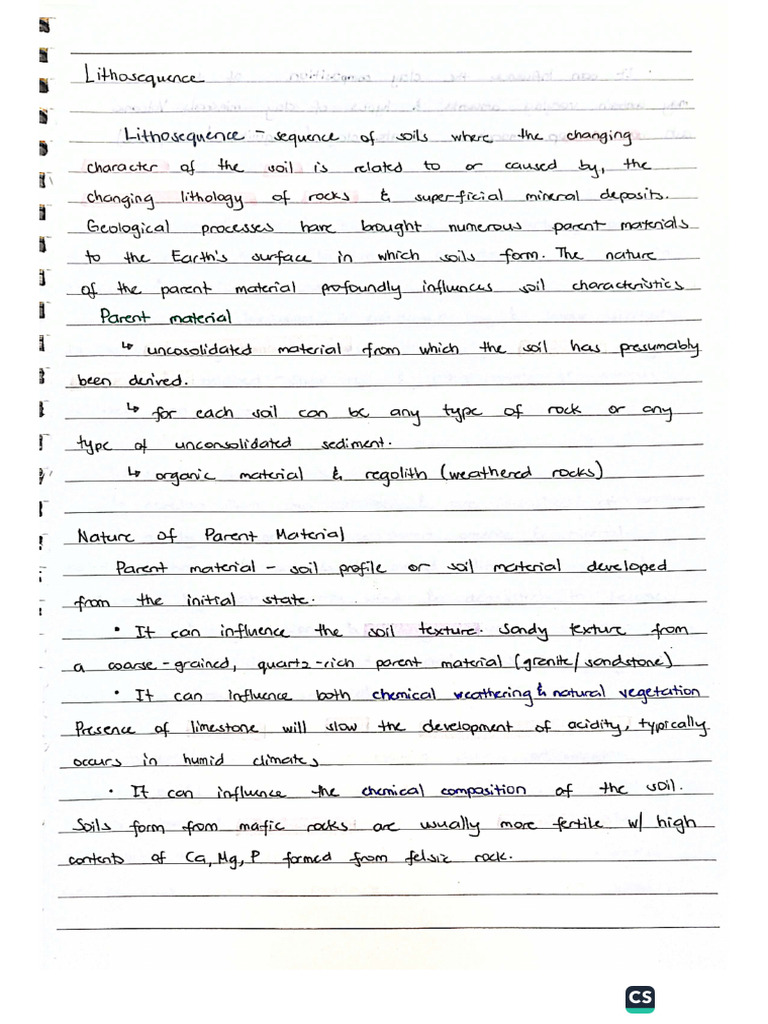 Lithosequence
Lithosequence - sequence of soils where the changing
character of the soil is related to or caused by, the
changing lithology of rocks & super-ficial mineral deposits.
Geological processes have brought numerous parent materials
to the Earth's surface in which soils form. The nature
of the parent material profoundly influences soil characteristics
Parent material
↳ uncosolidated material from which the soil has presumably
been derived.
↳ for each soil can be any type of rock or any
type of unconsolidated sediment.
↳ organic material & regolith (weathered rocks)
Nature of Parent Material
Parent material - soil profile or soil material developed
from the initial state.
• It can influence the soil texture. Sandy texture from
a coarse-grained, quartz-rich parent material (granite/sandstone)
• It can influence both chemical weathering & natural vegetation
Presence of limestone will slow the development of acidity, typically
occurs in humid climates
• It can influence the chemical composition of the soil.
Soils form from mafic rocks are usually more fertile w/ high
contents of Ca, Mg, P formed from felsic rock.
CS